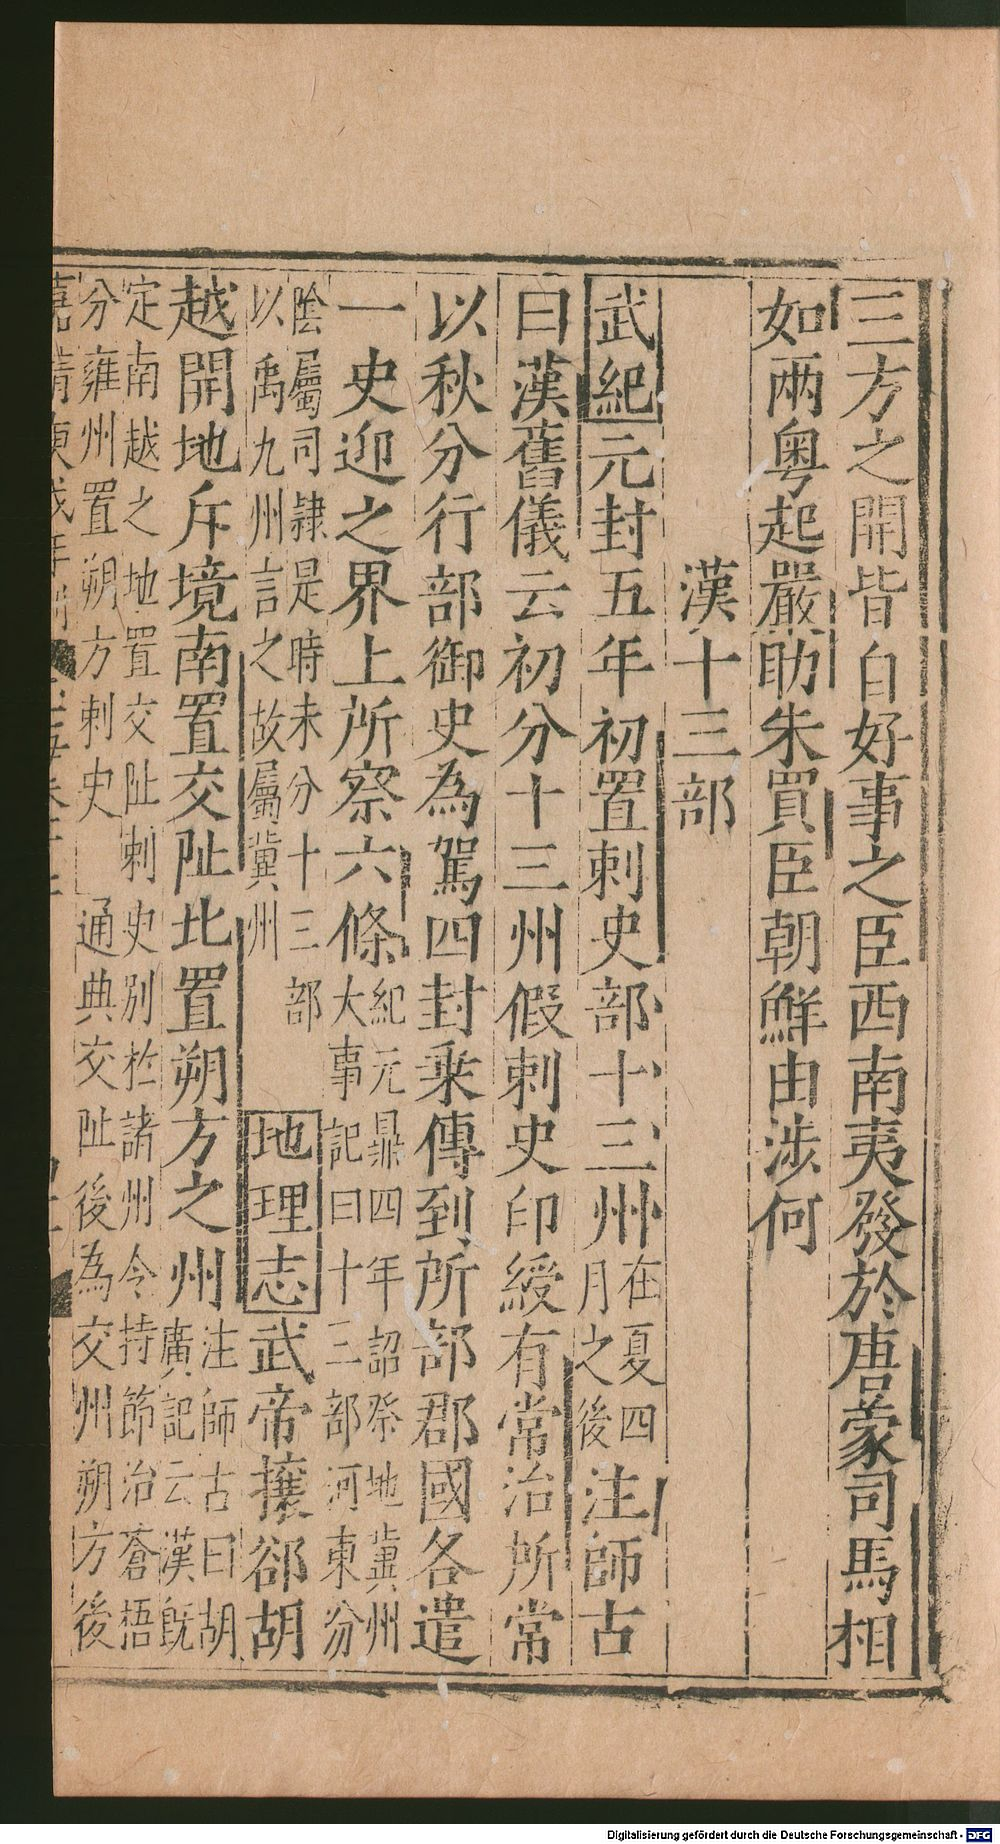 三方之開皆自好事之臣西南夷發於唐蒙司馬相
如兩粤起嚴助朱買臣朝鮮由涉何
漢十三部
武紀元封五年初置刺史部十三州
在夏四
月之後
注師古
曰漢舊儀云初分十三州假刺史印綬有常治所常
以秋分行部御史為駕四封乘傳到所部郡國各遣
一史迎之界上所察六條
紀元鼎四年詔祭地冀州
大事記曰十三部河東分
陰屬司隷是時未分十三部
以禹九州言之故屬冀州
地理志武帝攘郤胡
越開地斥境南置交阯北置朔方之州
注師古曰胡
廣記云漢旣
定南越之地置交阯刺史別於諸州令持節治蒼梧
分雍州置朔方刺史
通典交阯後為交州朔方後
Digitalisierung gefördert durch die Deutsche Forschungsgemeinschaft - DFG